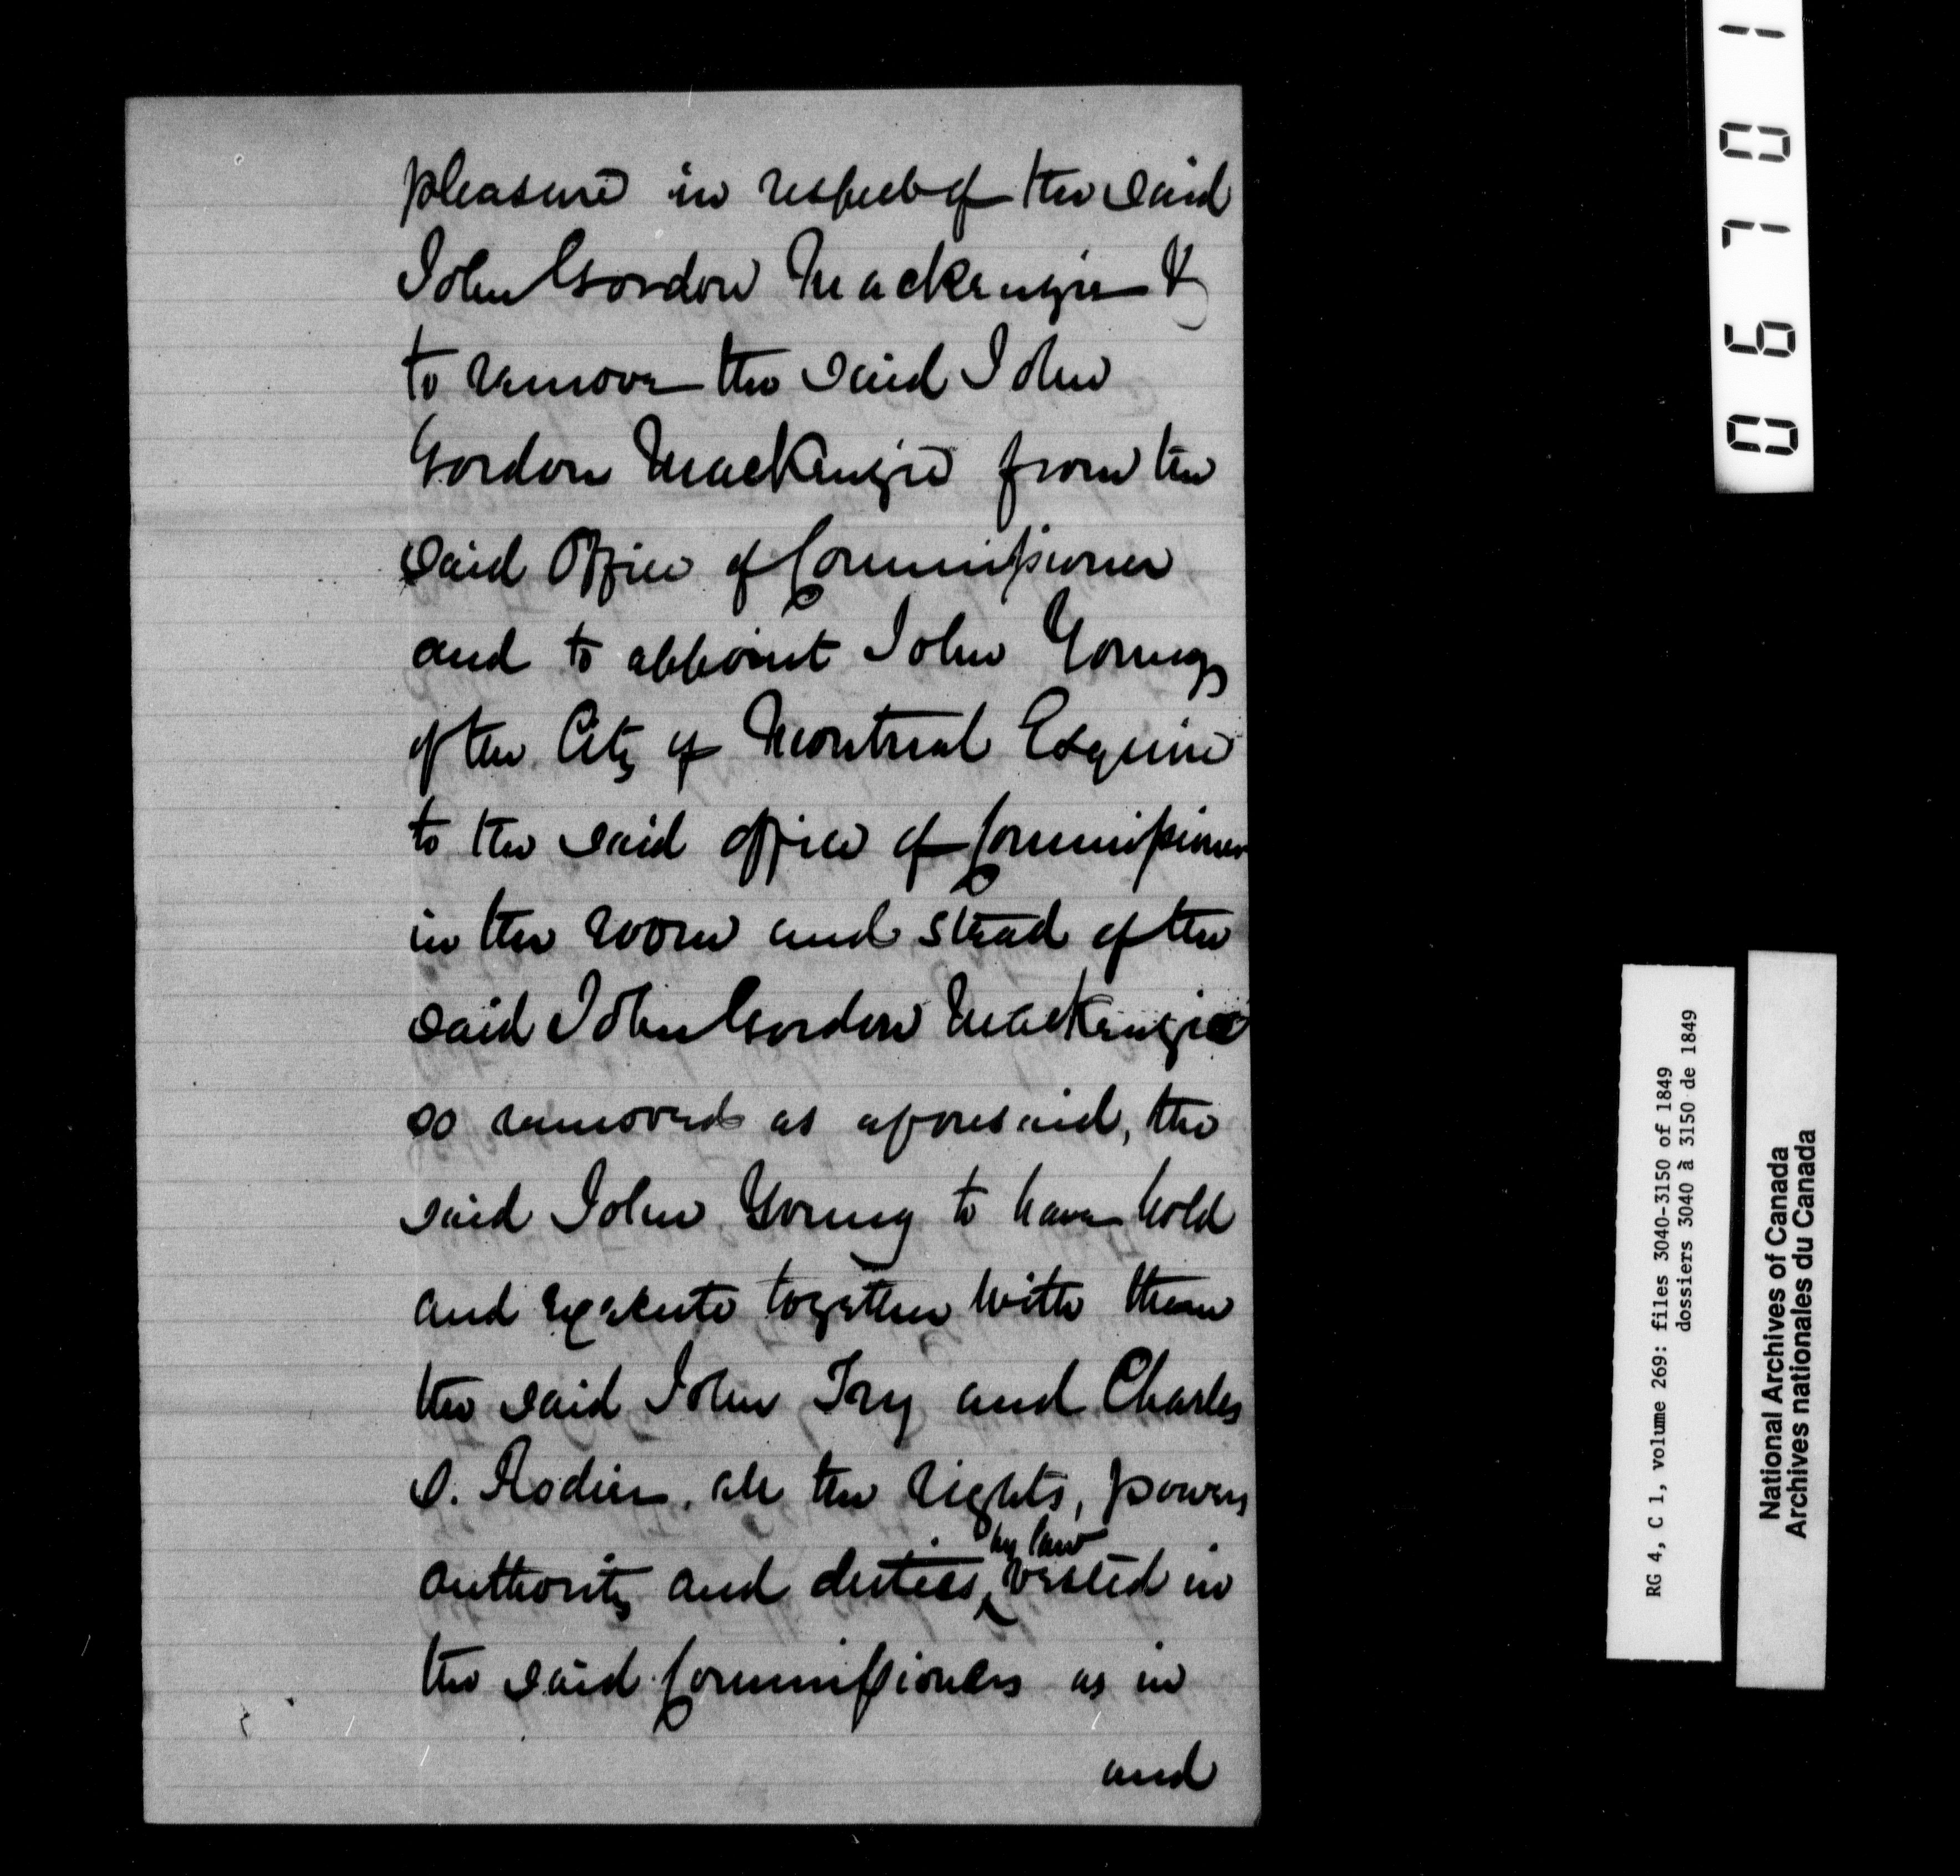 pleasure in respect of the said
John Gordon Mackenzie &
to remove the said John
Gordon Mackenzie from the
said Office of Commissioner
and to appoint John Young
of the City of Montreal Esquire
to the said office of Commissioner
in the room and stead of the
said John Gordon Mackenzie
so removed as aforesaid, the
said John Young to have hold
and execute together with them
the said John Try and Charles
S. Rodier, all the rights, powers
authority and duties by law vested in
the said Commissioners as in
and
06701
RG 4, C 1, volume 269: files 3040-3150 of 1849
dossiers 3040 à 3150 de 1849
National Archives of Canada
Archives nationales du Canada